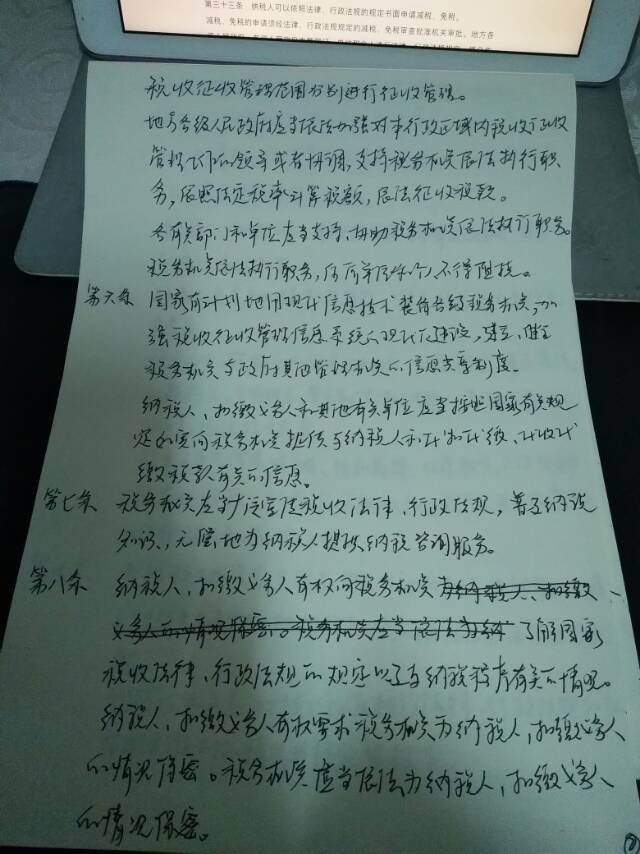 第三十三条 纳税人可以依照法律、行政法规的规定书面申请减税、免税。
减税、免税的申请须经法律、行政法规规定的减税、免税审查批准机关审批。地方各
税收征收管理范围分别进行征收管理。
地方各级人民政府应当依法加强对本行政区域内税收行政
管理工作的领导或者协调,支持税务机关依法执行职
务,依照法定税率计算税额,依法征收税款。
各有关部门和单位应当支持、协助税务机关依法执行职务。
税务机关依法执行职务,任何单位和个人不得阻挠。
第六条 国家有计划地用现代信息技术装备各级税务机关,加
强税收征收管理信息系统的现代化建设,建立、健全
税务机关与政府其他管理机关的信息共享制度。
纳税人、扣缴义务人和其他有关单位应当按照国家有关规
定如实向税务机关提供与纳税人和代扣代缴、代收代
缴税款有关的信息。
第七条 税务机关应当广泛宣传税收法律、行政法规,普及纳税
知识,无偿地为纳税人提供纳税咨询服务。
第八条 纳税人、扣缴义务人有权向税务机关为纳税人、扣缴
义务人的情况保密。税务机关应当依法为纳 了解国家
税收法律、行政法规的规定以及与纳税程序有关的情况。
纳税人、扣缴义务人有权要求税务机关为纳税人、扣缴义务人
的情况保密。税务机关应当依法为纳税人、扣缴义务人
的情况保密。